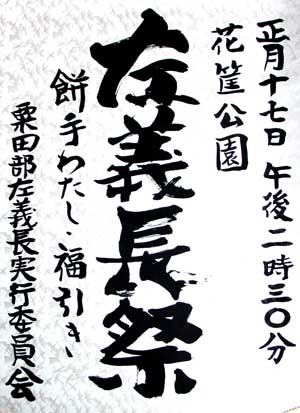 正月十七日 午後二時三〇分
花筐公園
左義長祭
餅手わたし・福引き
粟田部左義長実行委員会